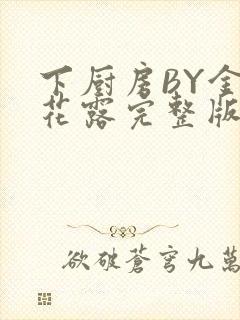 下厨房BY金
花露完整版
欲破蒼穹九萬